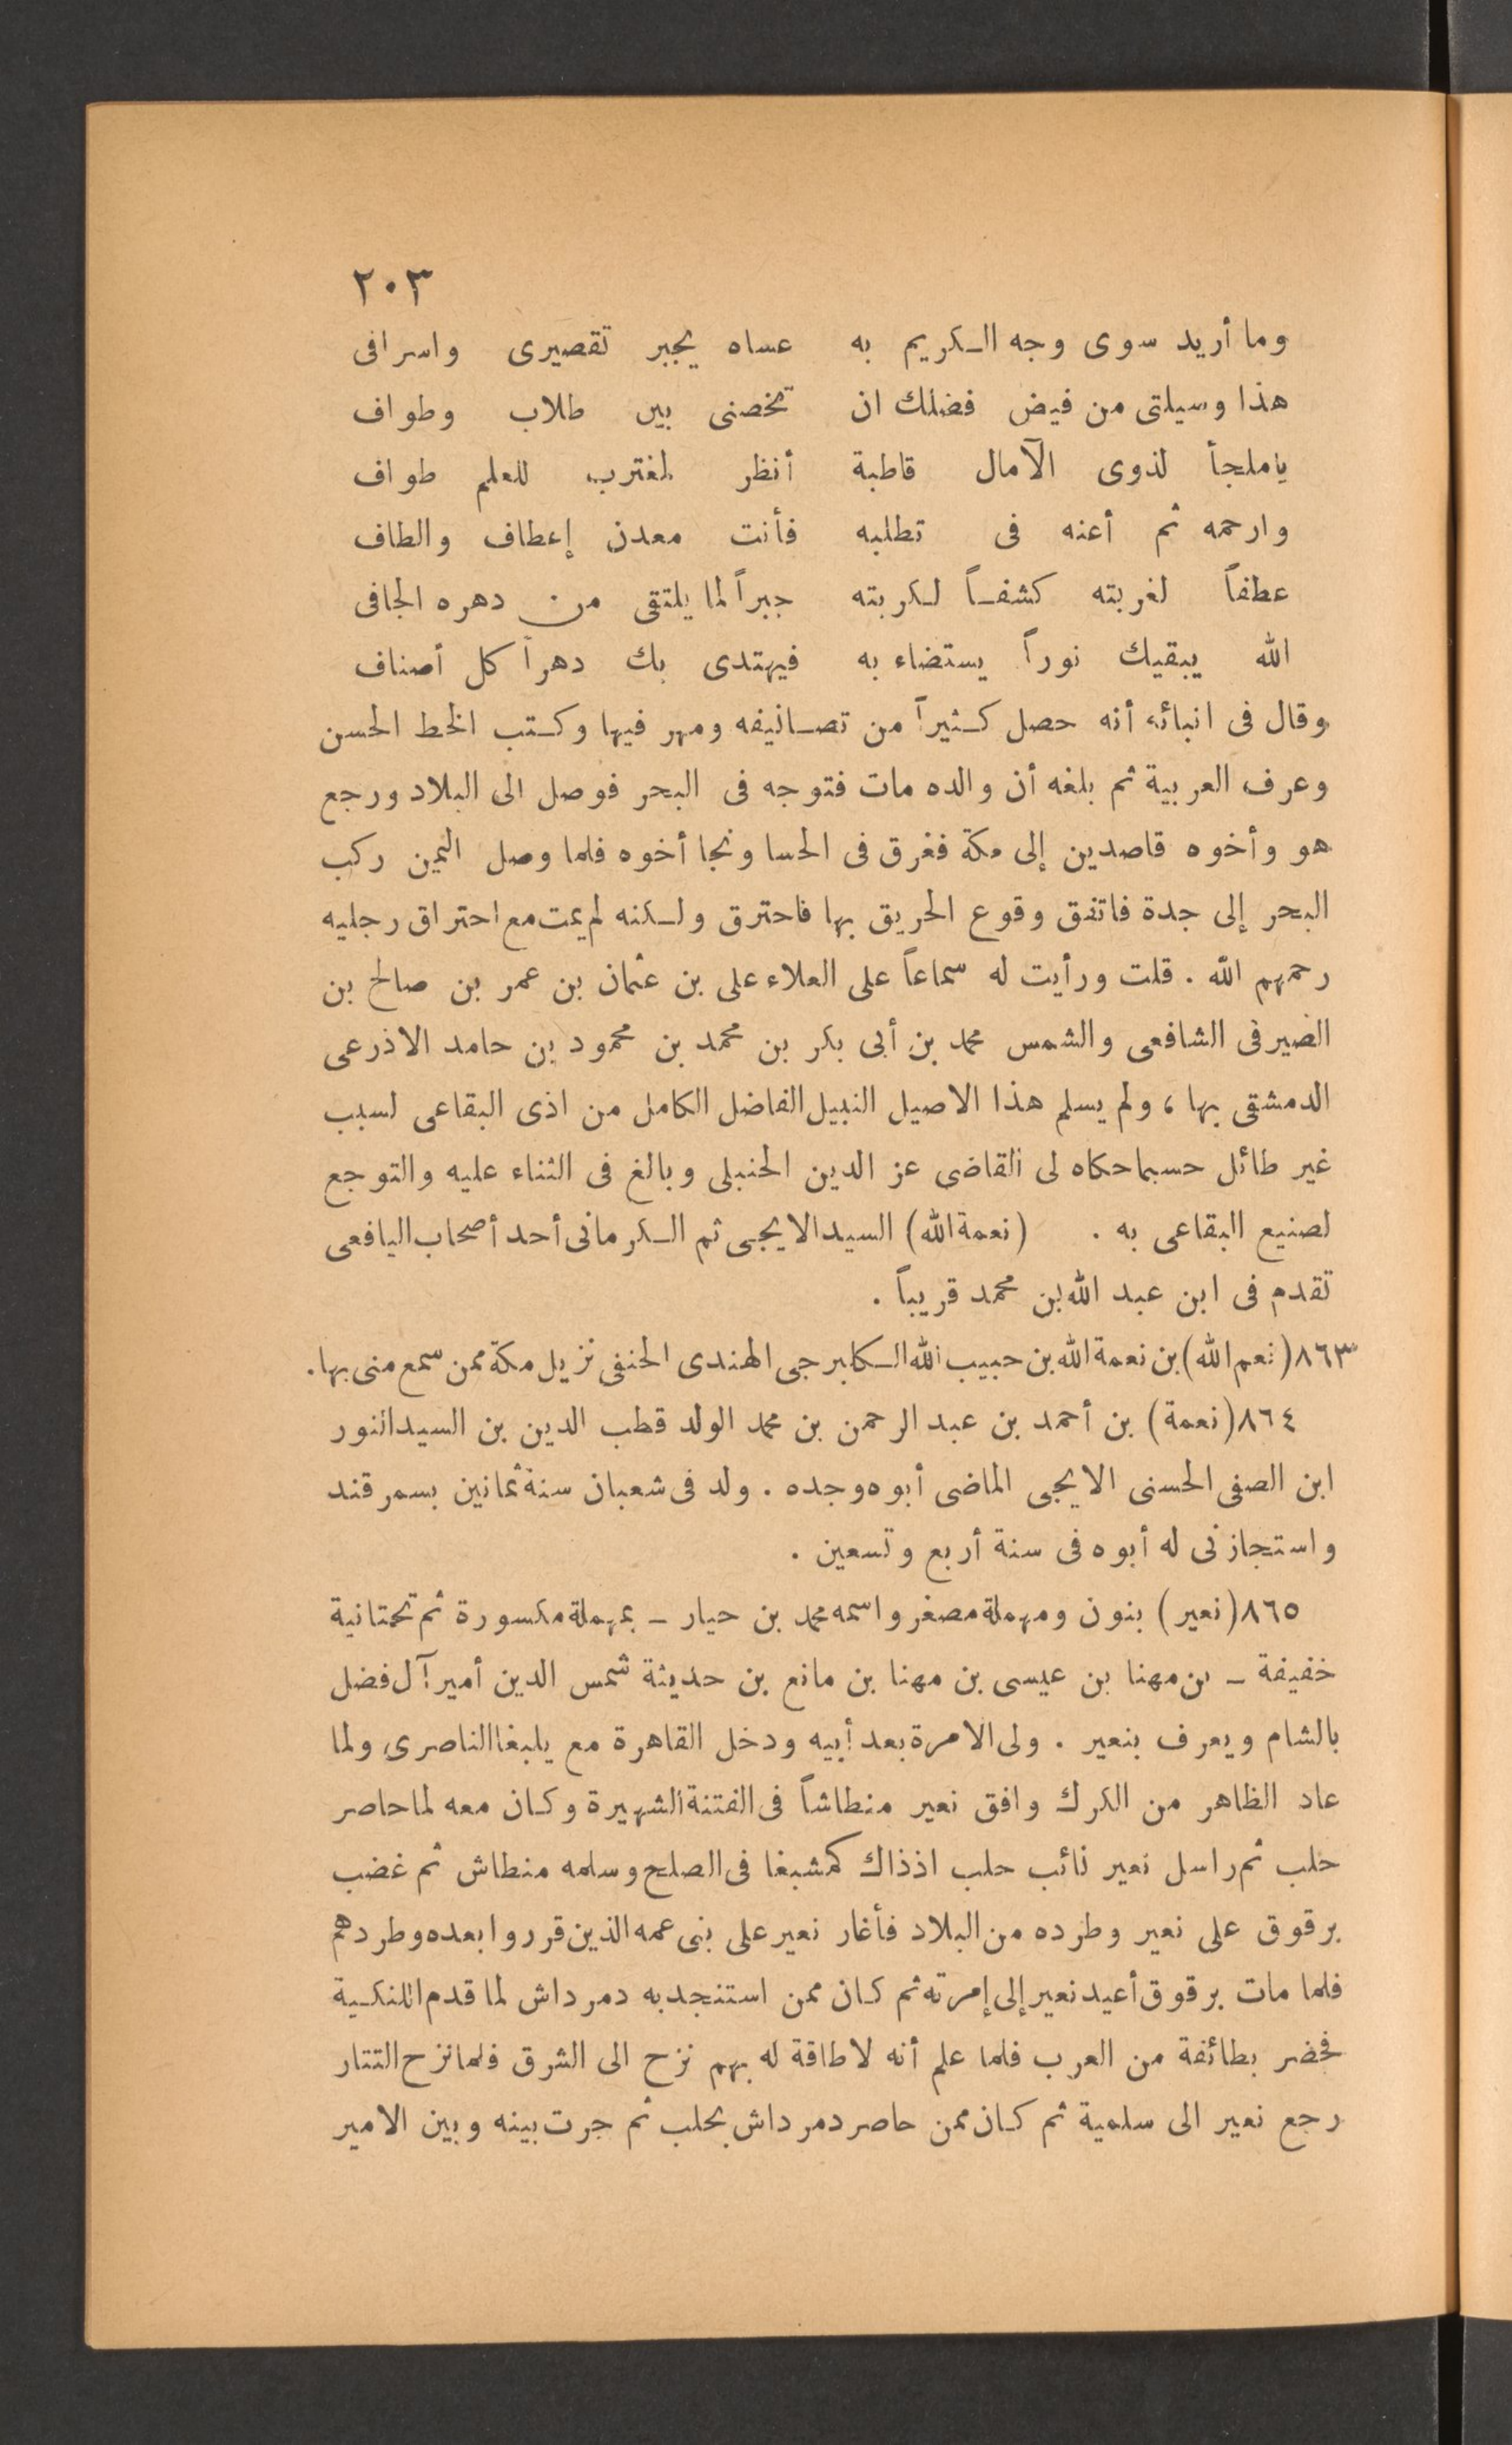 ٢٠٣
وما أريد سوى وجه الكريم به عساه يجبر تقصيرى واسرافى
هذا وسيلتى من فيض فضلك ان تخصنى بين طلاب وطواف
ياملجأ لذوى الآمال قاطبة أنظر لمغترب للعلم طواف
وارحمه ثم أعنه فى تطلبه فأنت معدن إعطاف والطاف
عطفاً لغربته كشفاً لكربته جبراً لما يلتقى من دهره الجافى
الله يبقيك نوراً يستضاء به فيهتدى بك دهراً كل أصناف
وقال فى انبائه أنه حصل كثيراً من تصانيفه ومهر فيها وكتب الخط الحسن
وعرف العربية ثم بلغه أن والده مات فتوجه فى البحر فوصل الى البلاد ورجع
هو وأخوه قاصدين إلى مكة فغرق فى الحسا ونجا أخوه فلما وصل اليمن ركب
البحر إلى جدة فاتفق وقوع الحريق بها فاحترق ولكنه لم يمت مع احتراق رجليه
رحمهم الله . قلت ورأيت له سماعاً على العلاء على بن عثمان بن عمر بن صالح بن
الصيرفى الشافعى والشمس محمد بن أبى بكر بن محمد بن محمود بن حامد الاذرعى
الدمشقى بها ، ولم يسلم هذا الاصيل النبيل الفاضل الكامل من اذى البقاعى لسبب
غير طائل حسبما حكاه لى القاضى عز الدين الحنبلى وبالغ فى الثناء عليه والتوجع
لصنيع البقاعى به . (نعمة الله) السيد الايجى ثم الكرمانى أحد أصحاب اليافعى
تقدم فى ابن عبد الله بن محمد قريباً .
٨٦٣ (نعم الله) بن نعمة الله بن حبيب الله الكابرجى الهندى الحنفى نزيل مكة ممن سمع منى بها .
٨٦٤ (نعمة) بن أحمد بن عبد الرحمن بن محمد الولد قطب الدين بن السيد النور
ابن الصفى الحسنى الايجى الماضى أبوه وجده . ولد فى شعبان سنة ثمانين بسمرقند
واستجازنى له أبوه فى سنة أربع وتسعين .
٨٦٥ (نعير) بنون ومهملة مصغر واسمه محمد بن حيار - بمهملة مكسورة ثم تحتانية
خفيفة - بن مهنا بن عيسى بن مهنا بن مانع بن حديثة شمس الدين أمير آل فضل
بالشام ويعرف بنعير . ولى الامرة بعد أبيه ودخل القاهرة مع يلبغا الناصرى ولما
عاد الظاهر من الكرك وافق نعير منطاشاً فى الفتنة الشهيرة وكان معه لما حاصر
حلب ثم راسل نعير نائب حلب اذ ذاك كمشبغا فى الصلح وسلمه منطاش ثم غضب
برقوق على نعير وطرده من البلاد فأغار نعير على بنى عمه الذين قرروا بعده وطردهم
فلما مات برقوق أعيد نعير إلى إمرته ثم كان ممن استنجد به دمرداش لما قدم اللنكية
فحضر بطائفة من العرب فلما علم أنه لا طاقة له بهم نزح الى الشرق فلما نزح التتار
رجع نعير الى سلمية ثم كان ممن حاصر دمرداش بحلب ثم جرت بينه وبين الامير